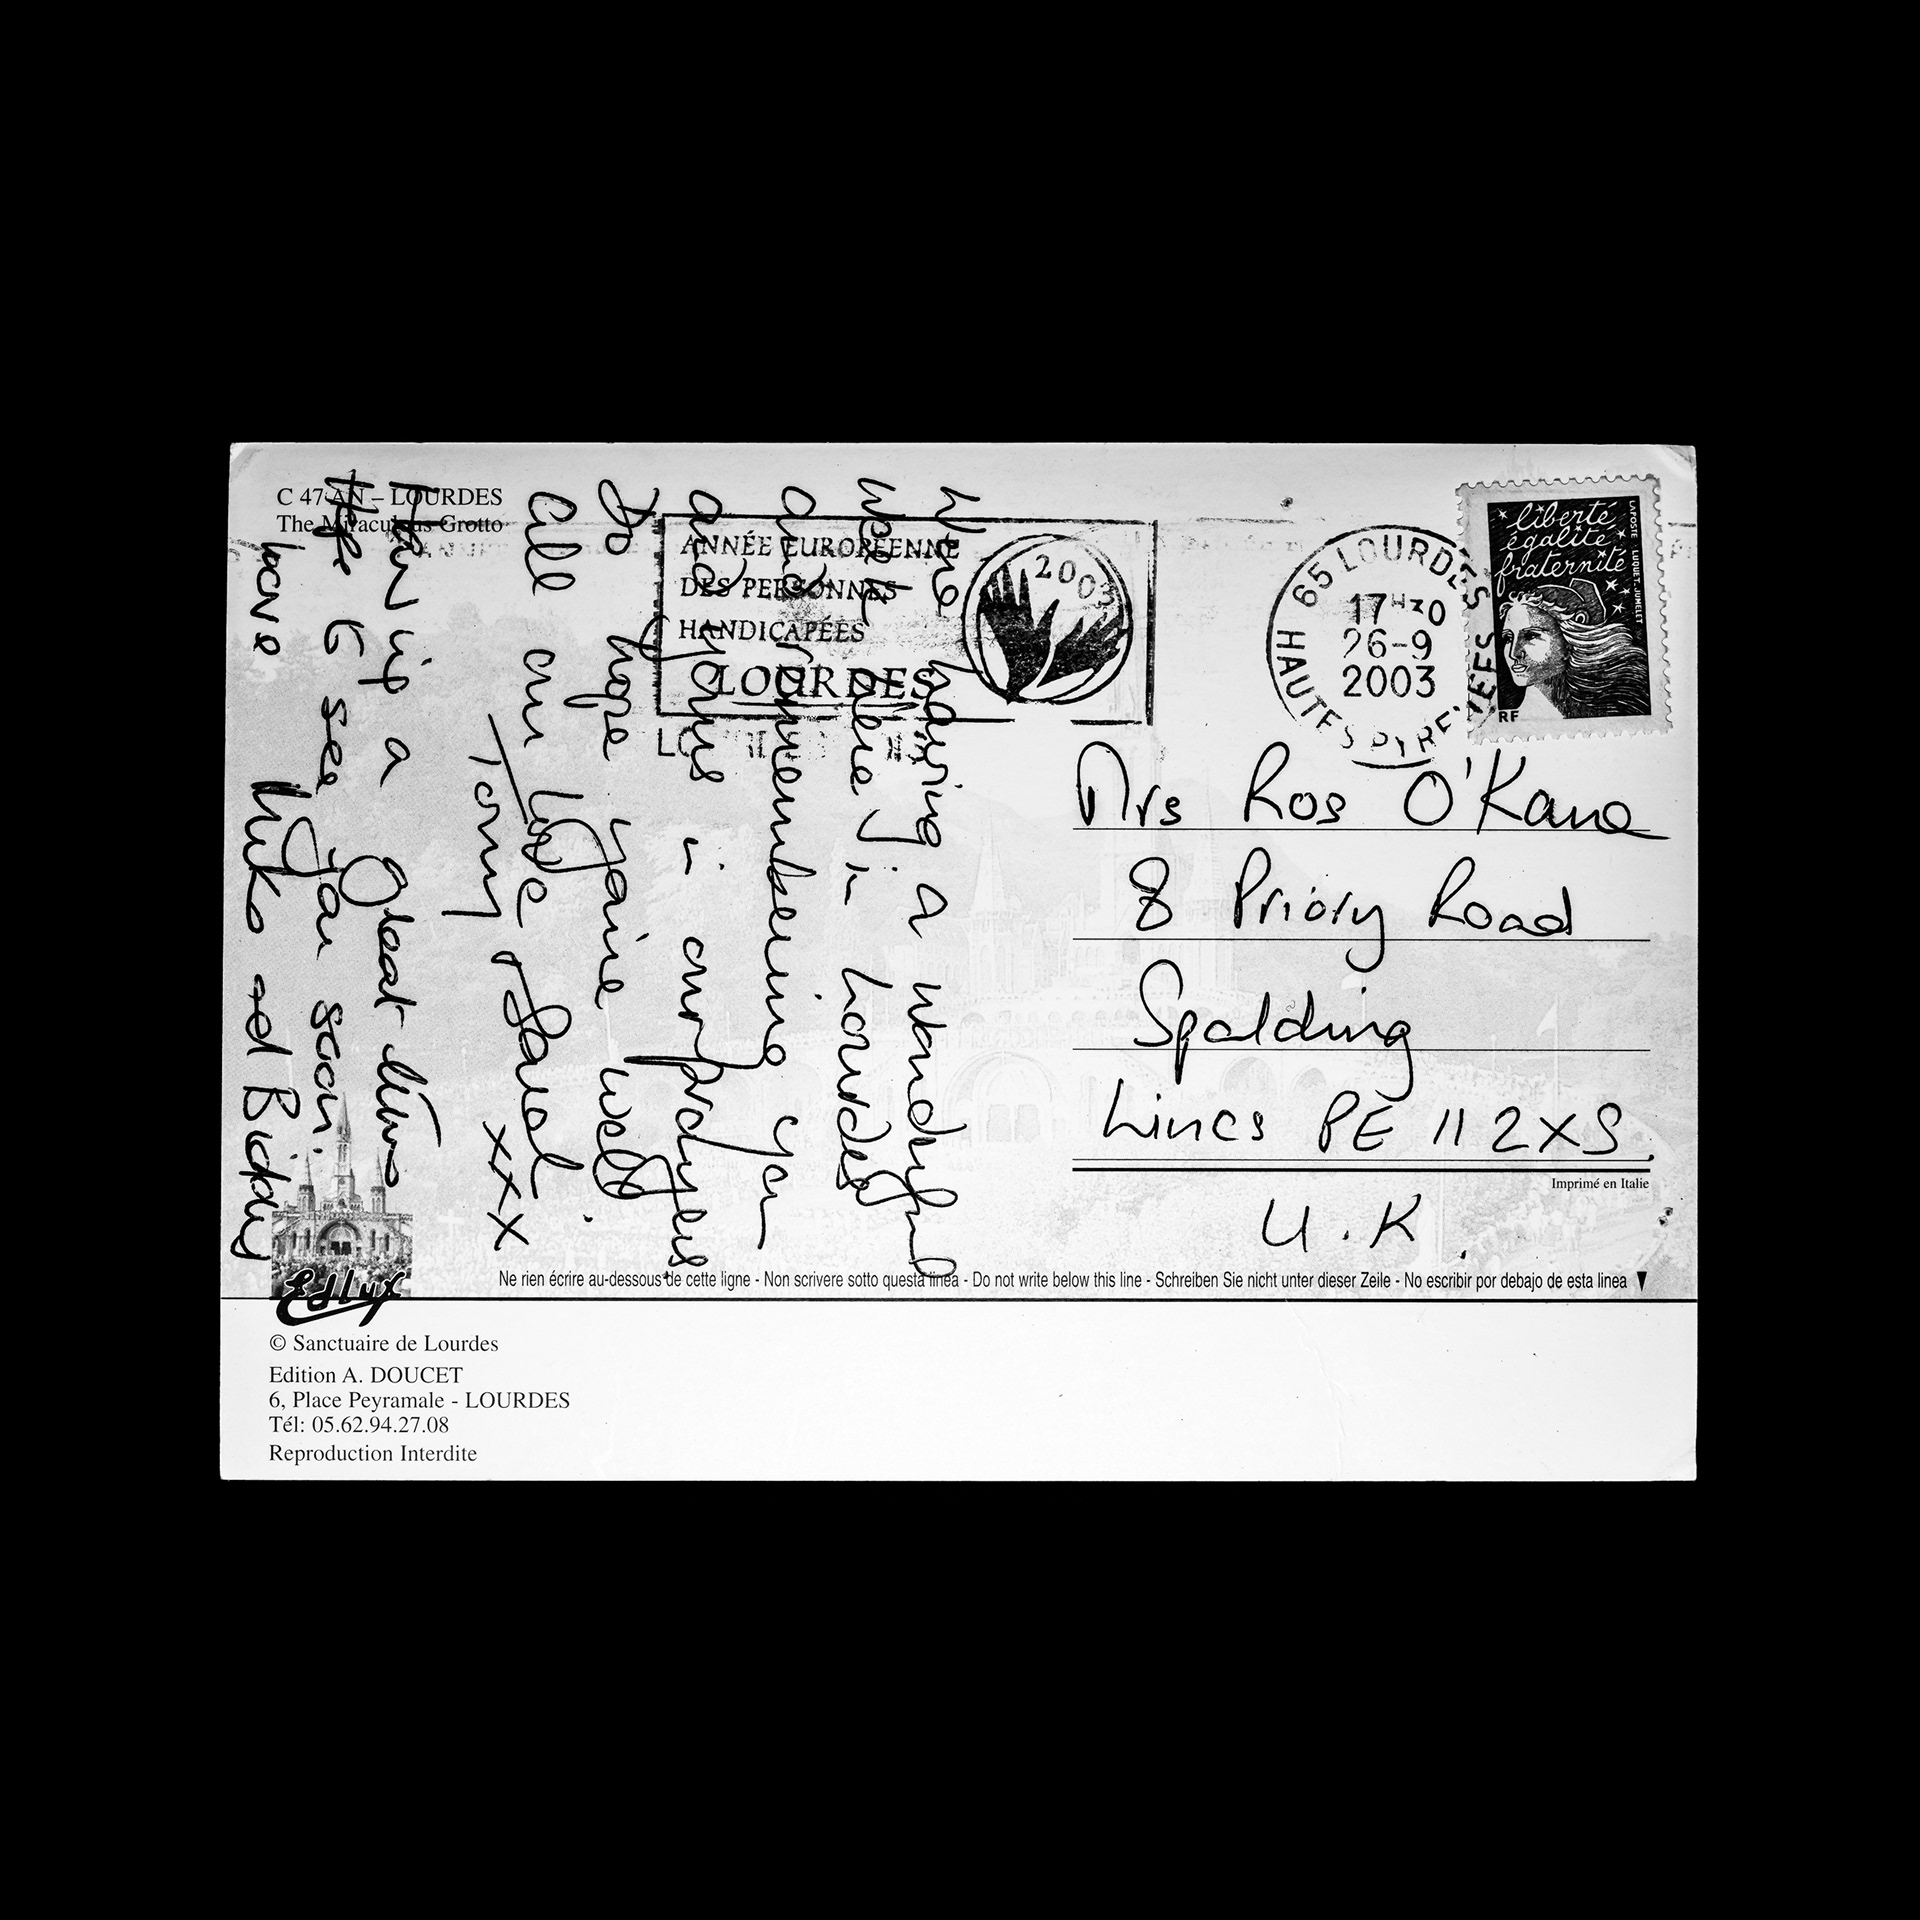 C 47 AN – LOURDES
The Miraculous Grotto
We're having a wonderful
week here in Lourdes
and remembering you
and yours in our prayers
Do hope you're well
All our love & good
Tony xxx
up a Great time
Hope to see you soon.
love Mike and Biddy
ANNÉE EUROPÉENNE
DES PERSONNES
HANDICAPÉES
LOURDES
2003
65 LOURDES
17H30
26-9
2003
HAUTES PYRENEES
liberté
égalité
fraternité
RF
LA POSTE LUQUET-JUMELET
Mrs Ros O'Kane
8 Priory Road
Spalding
Lincs PE 11 2XS.
Imprimé en Italie
U.K.
Edlux
Ne rien écrire au-dessous de cette ligne - Non scrivere sotto questa linea - Do not write below this line - Schreiben Sie nicht unter dieser Zeile - No escribir por debajo de esta linea
© Sanctuaire de Lourdes
Edition A. DOUCET
6, Place Peyramale - LOURDES
Tél: 05.62.94.27.08
Reproduction Interdite